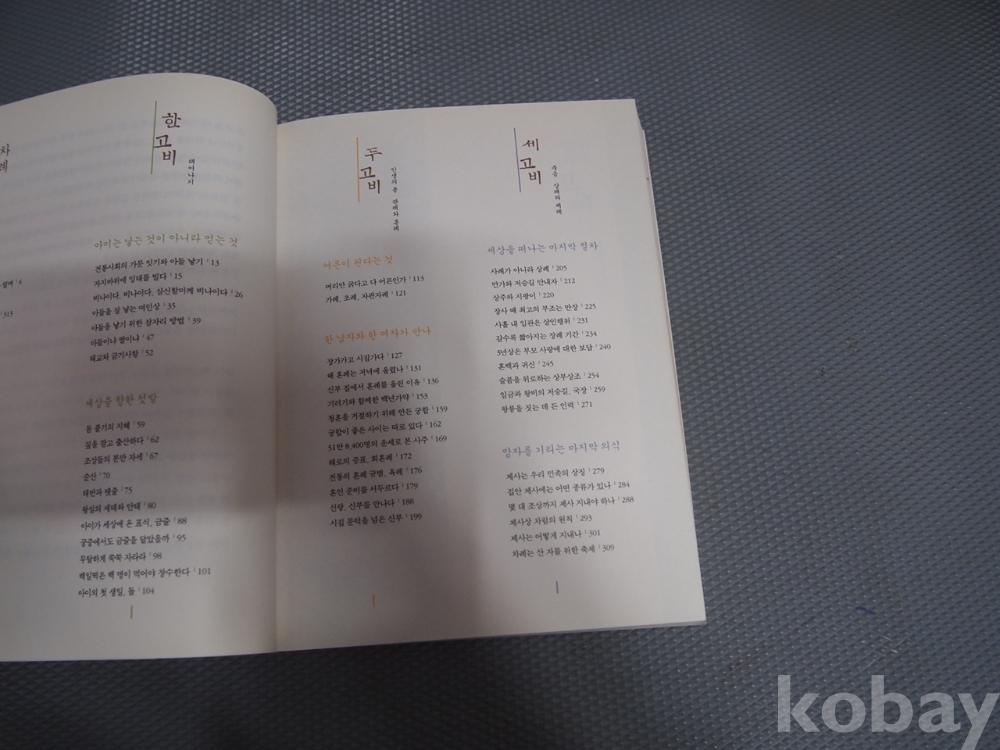 차
례
6
315
한
고
비
태어나기
아이는 낳는 것이 아니라 얻는 것
전통사회의 가문 잇기와 아들 낳기 13
자지바위에 잉태를 빌다 15
비나이다, 비나이다, 삼신할미께 비나이다 26
아들을 잘 낳는 여인상 35
아들을 낳기 위한 잠자리 방법 39
아들이냐 딸이냐 47
태교와 금기사항 52
세상을 향한 첫발
몸 풀기의 지혜 59
짚을 깔고 출산하다 62
조상들의 분만 자세 67
순산 70
태반과 탯줄 75
왕실의 세태와 안태 80
아이가 세상에 온 표식, 금줄 88
궁중에서도 금줄을 달았을까 95
무탈하게 쑥쑥 자라라 98
백일떡은 백 명이 먹어야 장수한다 101
아이의 첫 생일, 돌 104
두
고
비
인생의 꽃 관례와 혼례
어른이 된다는 것
머리만 굵다고 다 어른인가 113
가례, 초례, 자관자례 121
한 남자와 한 여자가 만나
장가가고 시집가다 127
왜 혼례는 저녁에 올렸나 131
신부 집에서 혼례를 올린 이유 136
기러기와 함께한 백년가약 153
청혼을 거절하기 위해 만든 궁합 159
궁합이 좋은 사이는 따로 있다 162
51만 8,400명의 운세로 본 사주 169
해로의 증표, 회혼례 172
전통의 혼례 규범, 육례 176
혼인 준비를 서두르다 179
신랑, 신부를 만나다 188
시집 문턱을 넘은 신부 199
세
고
비
죽음 상례와 제례
세상을 떠나는 마지막 절차
사례가 아니라 상례 205
만가와 저승길 안내자 212
상주와 지팡이 220
장사 때 최고의 부조는 만장 225
사흘 내 입관은 살인행위 231
길수록 짧아지는 장례 기간 234
3년상은 부모 사랑에 대한 보답 240
혼백과 귀신 245
슬픔을 위로하는 상부상조 254
임금과 왕비의 저승길, 국장 259
왕릉을 짓는 데 든 인력 271
망자를 기리는 마지막 의식
제사는 우리 민족의 상징 279
집안 제사에는 어떤 종류가 있나 284
몇 대 조상까지 제사 지내야 하나 288
제사상 차림의 원칙 293
제사는 어떻게 지내나 301
차례는 산 자를 위한 축제 309
kobay